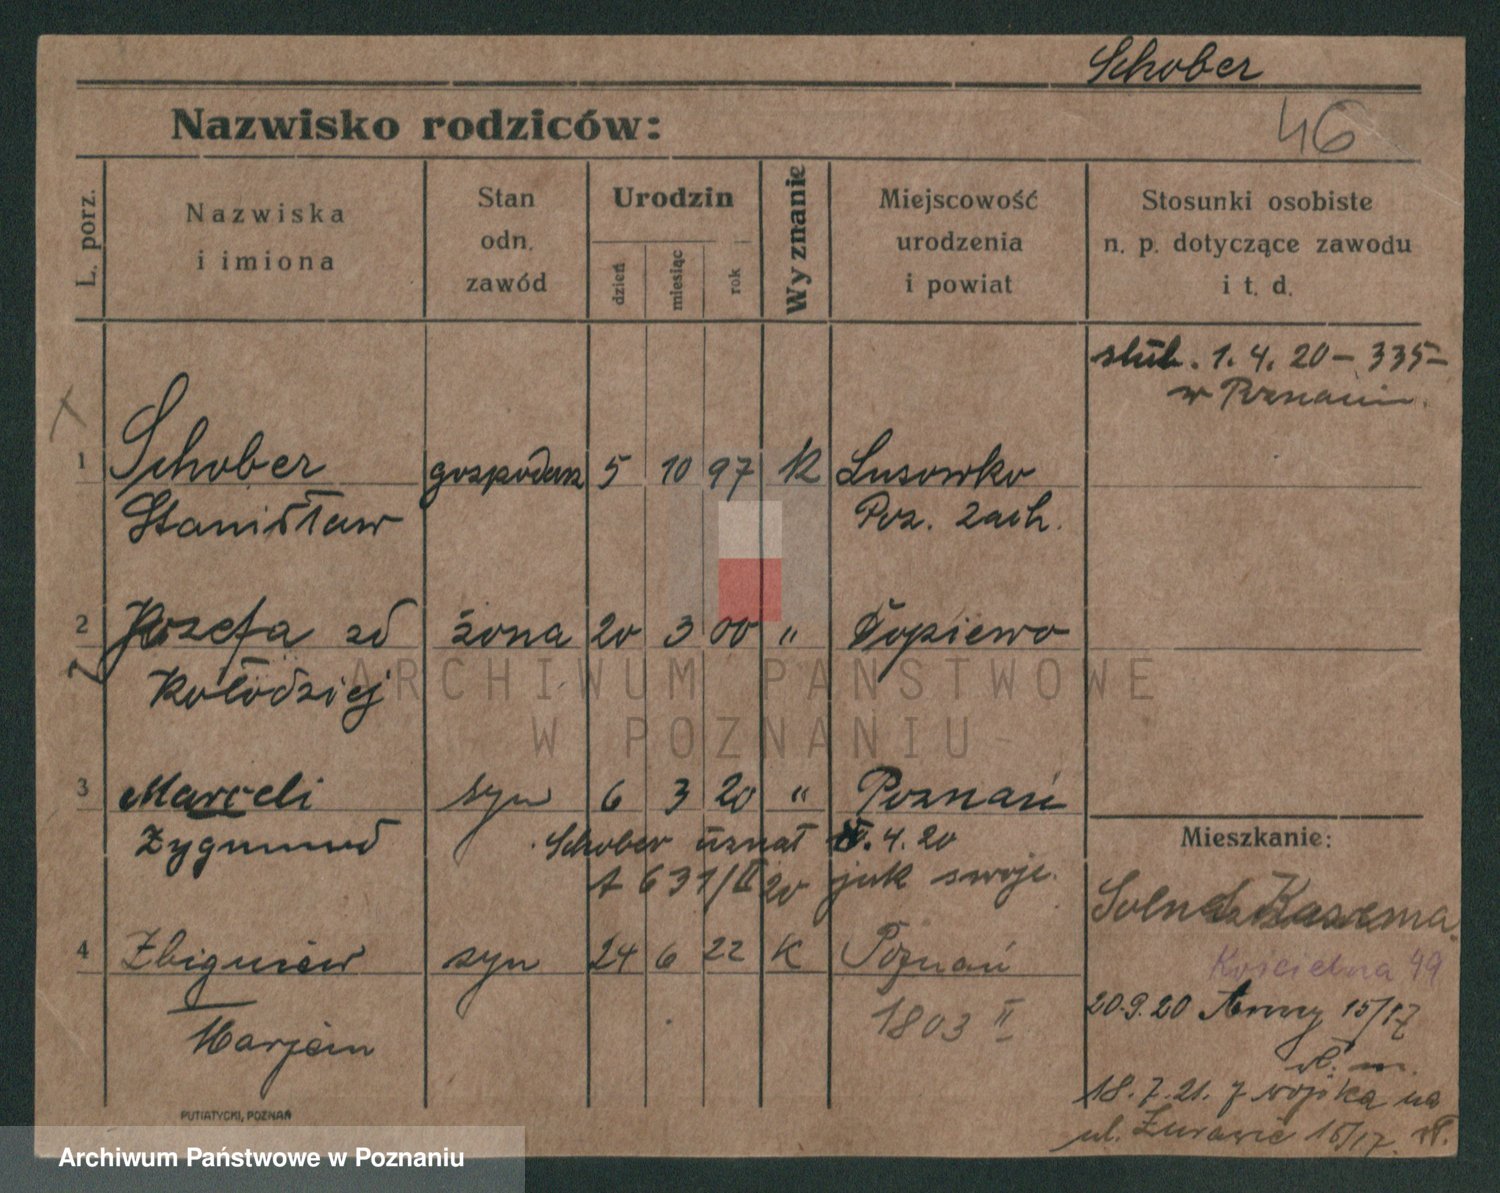 Schober
46
Nazwisko rodziców:
L. porz.
Nazwiska i imiona
Stan odn. zawód
Urodzin
dzień miesiąc rok
Wyznanie
Miejscowość urodzenia i powiat
Stosunki osobiste n. p. dotyczące zawodu i t. d.
ślub. 1. 4. 20 – 335 –
w Poznaniu.
1 Schober gospodarz 5 10 97 K Lusowko
Stanisław Poz. Zach.
2 Józefa zd żona 20 3 00 " Dopiewo
Kołodziej
ARCHIWUM PAŃSTWOWE
W POZNANIU
3 Marceli syn 6 3 20 " Poznań
Zygmund Schober uznał 4. 20
A 631/II 20 jak swoje.
Mieszkanie:
Solna
Kościelna 49
4 Zbigniew syn 24 6 22 K Poznań
Marjan 1803 II
20.9.20 Anny 15/17
18.7.21. z wojska na
ul. Żurawie 15/17
PUTIATYCKI, POZNAŃ
Archiwum Państwowe w Poznaniu